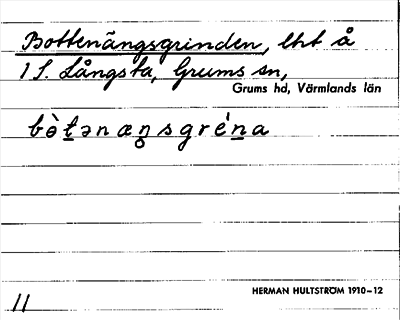 Bottenängsgrinden, lht å
1 S. Långsta, Grums sn,
Grums hd, Värmlands län
bòt̠ənæŋsgrén̠a
HERMAN HULTSTRÖM 1910–12
11